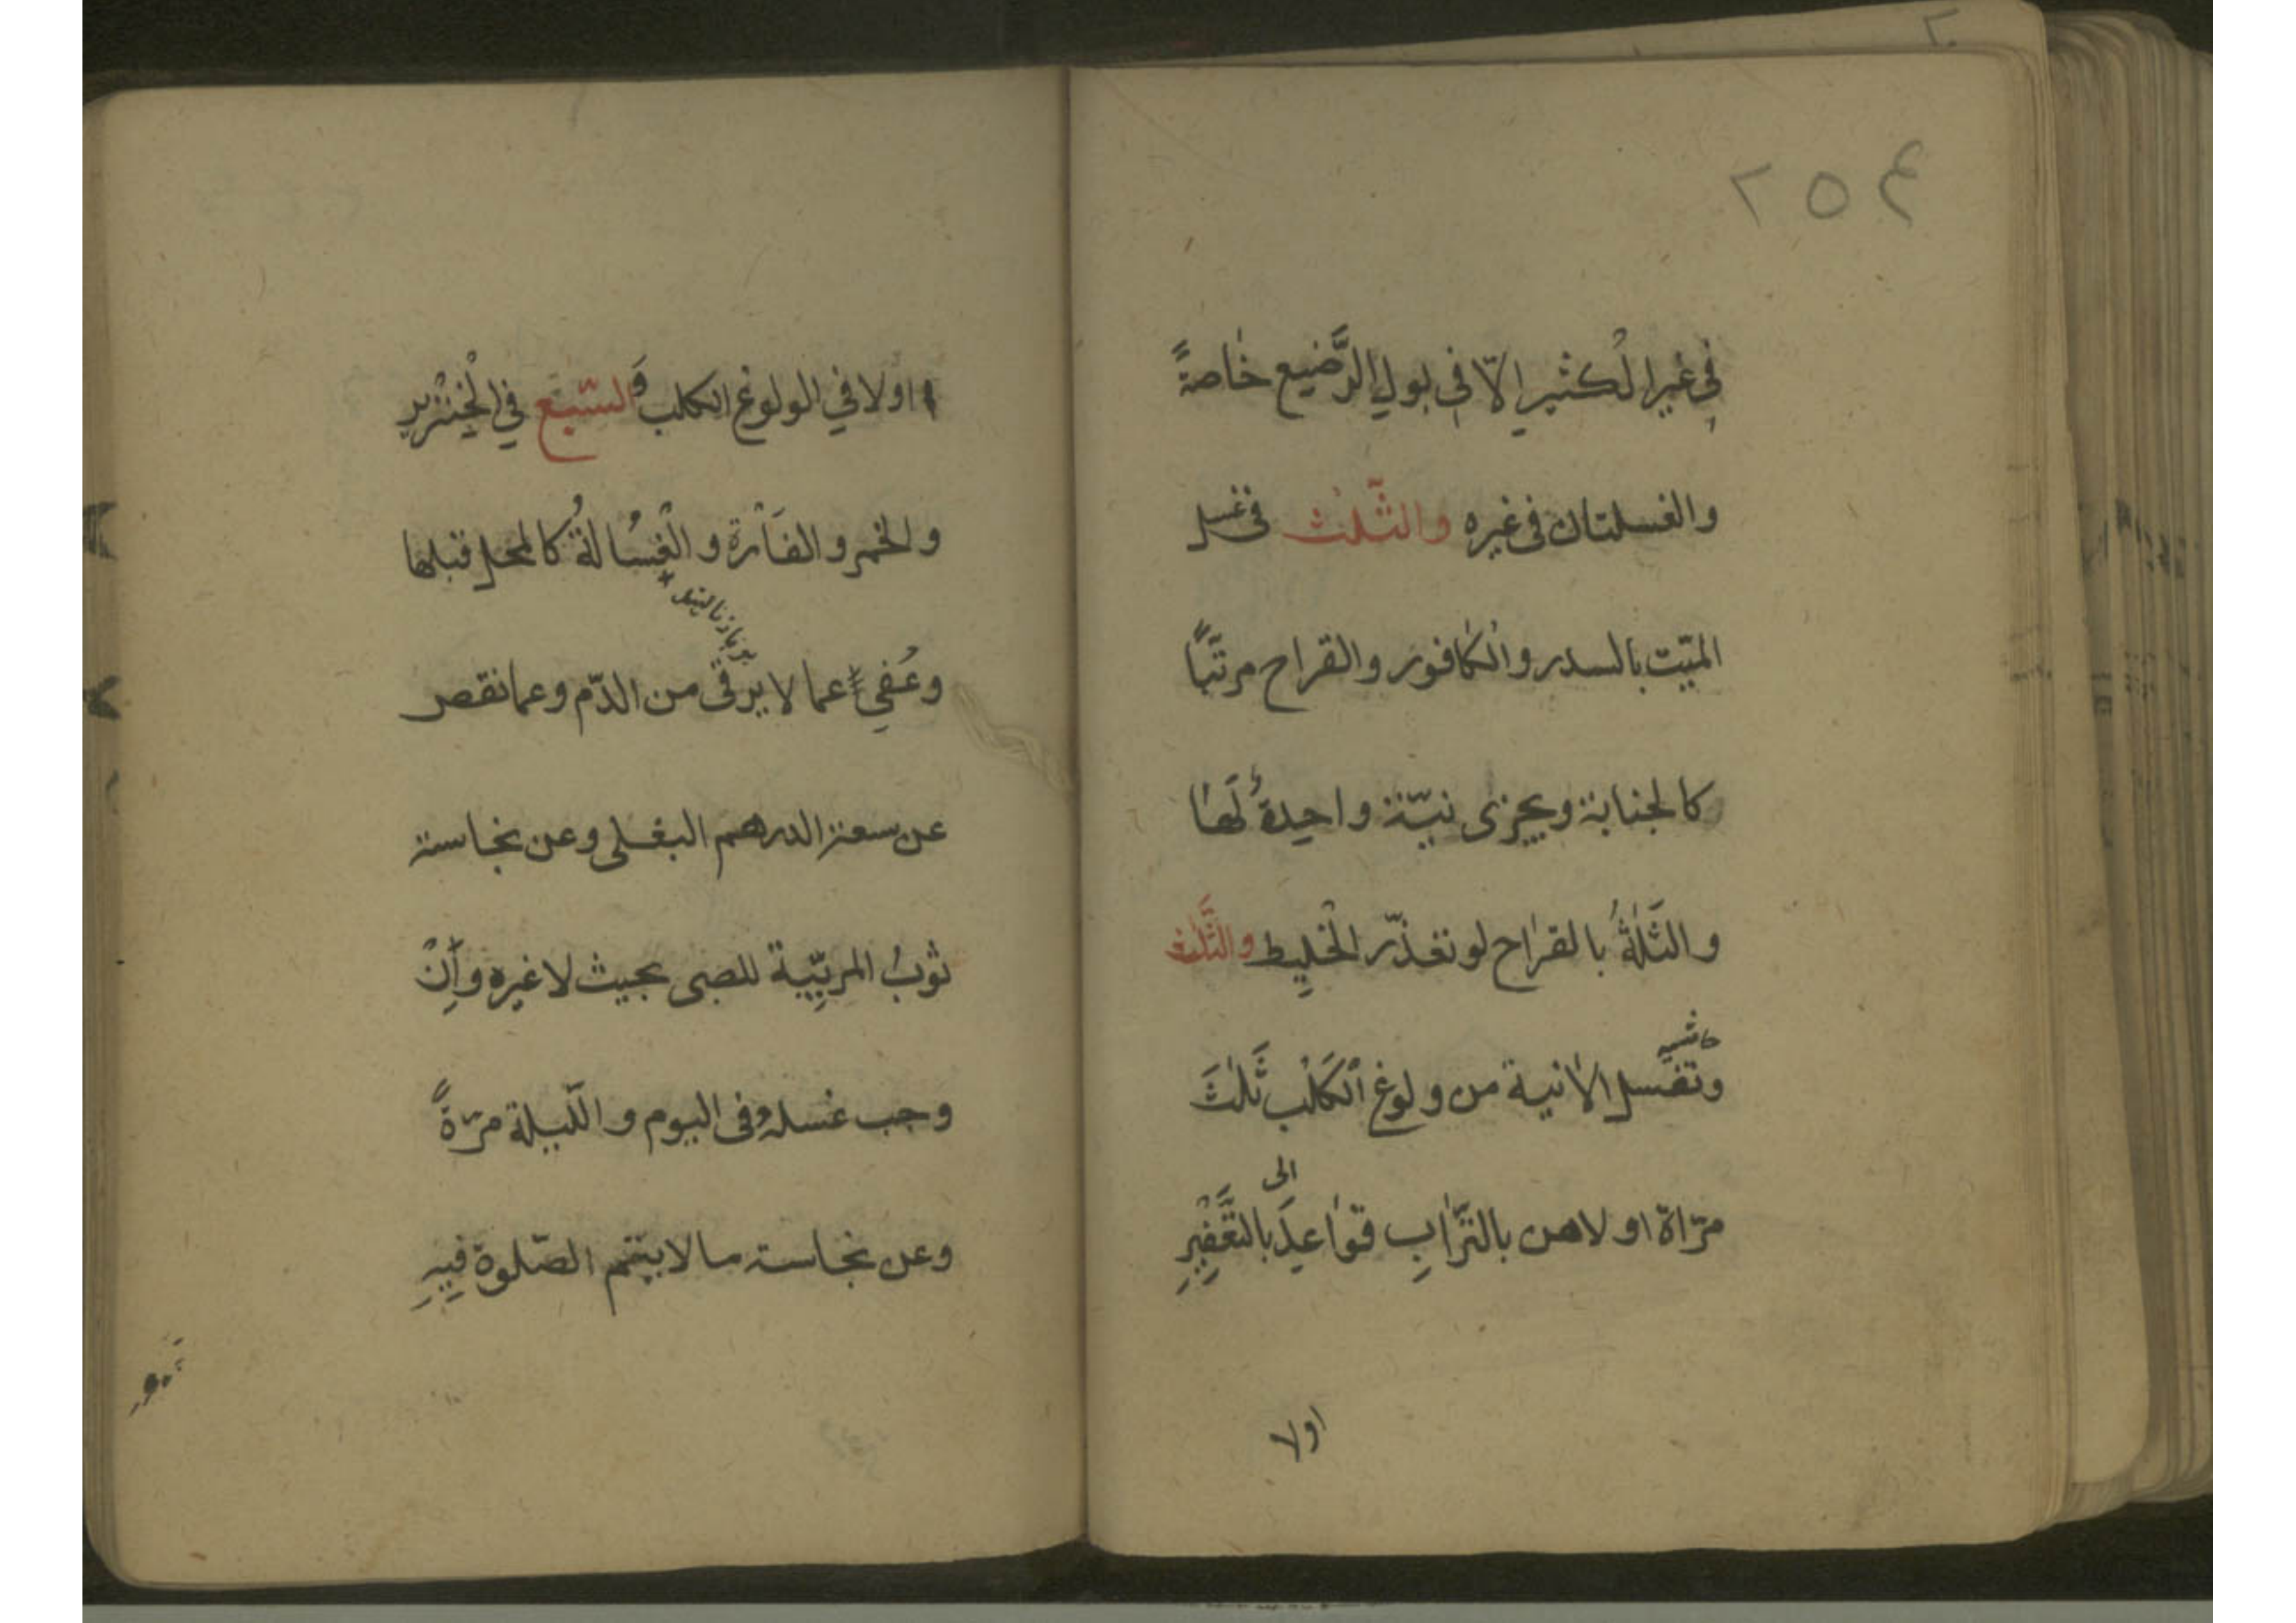 ٢٥٤
في غير الكثير الّا في بول الرَّضيع خاصةً
والغسلتان في غيره والثّلث في غسل
الميّت بالسدر والكافور والقراح مرتبًا
كالجنابة ويجزى نيّة واحدةٌ لها
والثّلثةُ بالقراح لو تعذّر الخليط والثَّلث
وتغسل الانية من ولوغ الكَلْب ثَلٰثَ
الى
مرّاة اولاهن بالتّرابِ قواعد بالتَّعْفِيرِ
اولا
اولا في الولوغ الكلب وَالسّبع في الْخِنْزير
والخمر والفَأرة والْغُسَالةُ كالمحل قبلها
وعُفي عما لا يرقى من الدّم وعما نقص
عن سعة الدرهم البغلى وعن نجاسة
ثوبُ المربّية للصبى بحيث لا غيره وإنْ
وجب غسلهُ فى اليوم والّليلة مرّةً
وعن نجاسة ما لا يتم الصّلوة فيهِ